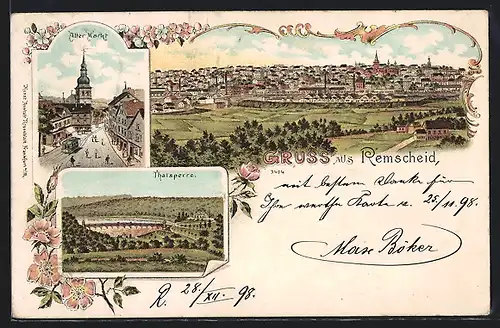 Alter Markt
GRUSS AUS Remscheid,
3404
Thalsperre.
mit bestem Danke für
Ihre werthe Karte v. 25/11 98.
Max Böker
R. 28./XII. 98.